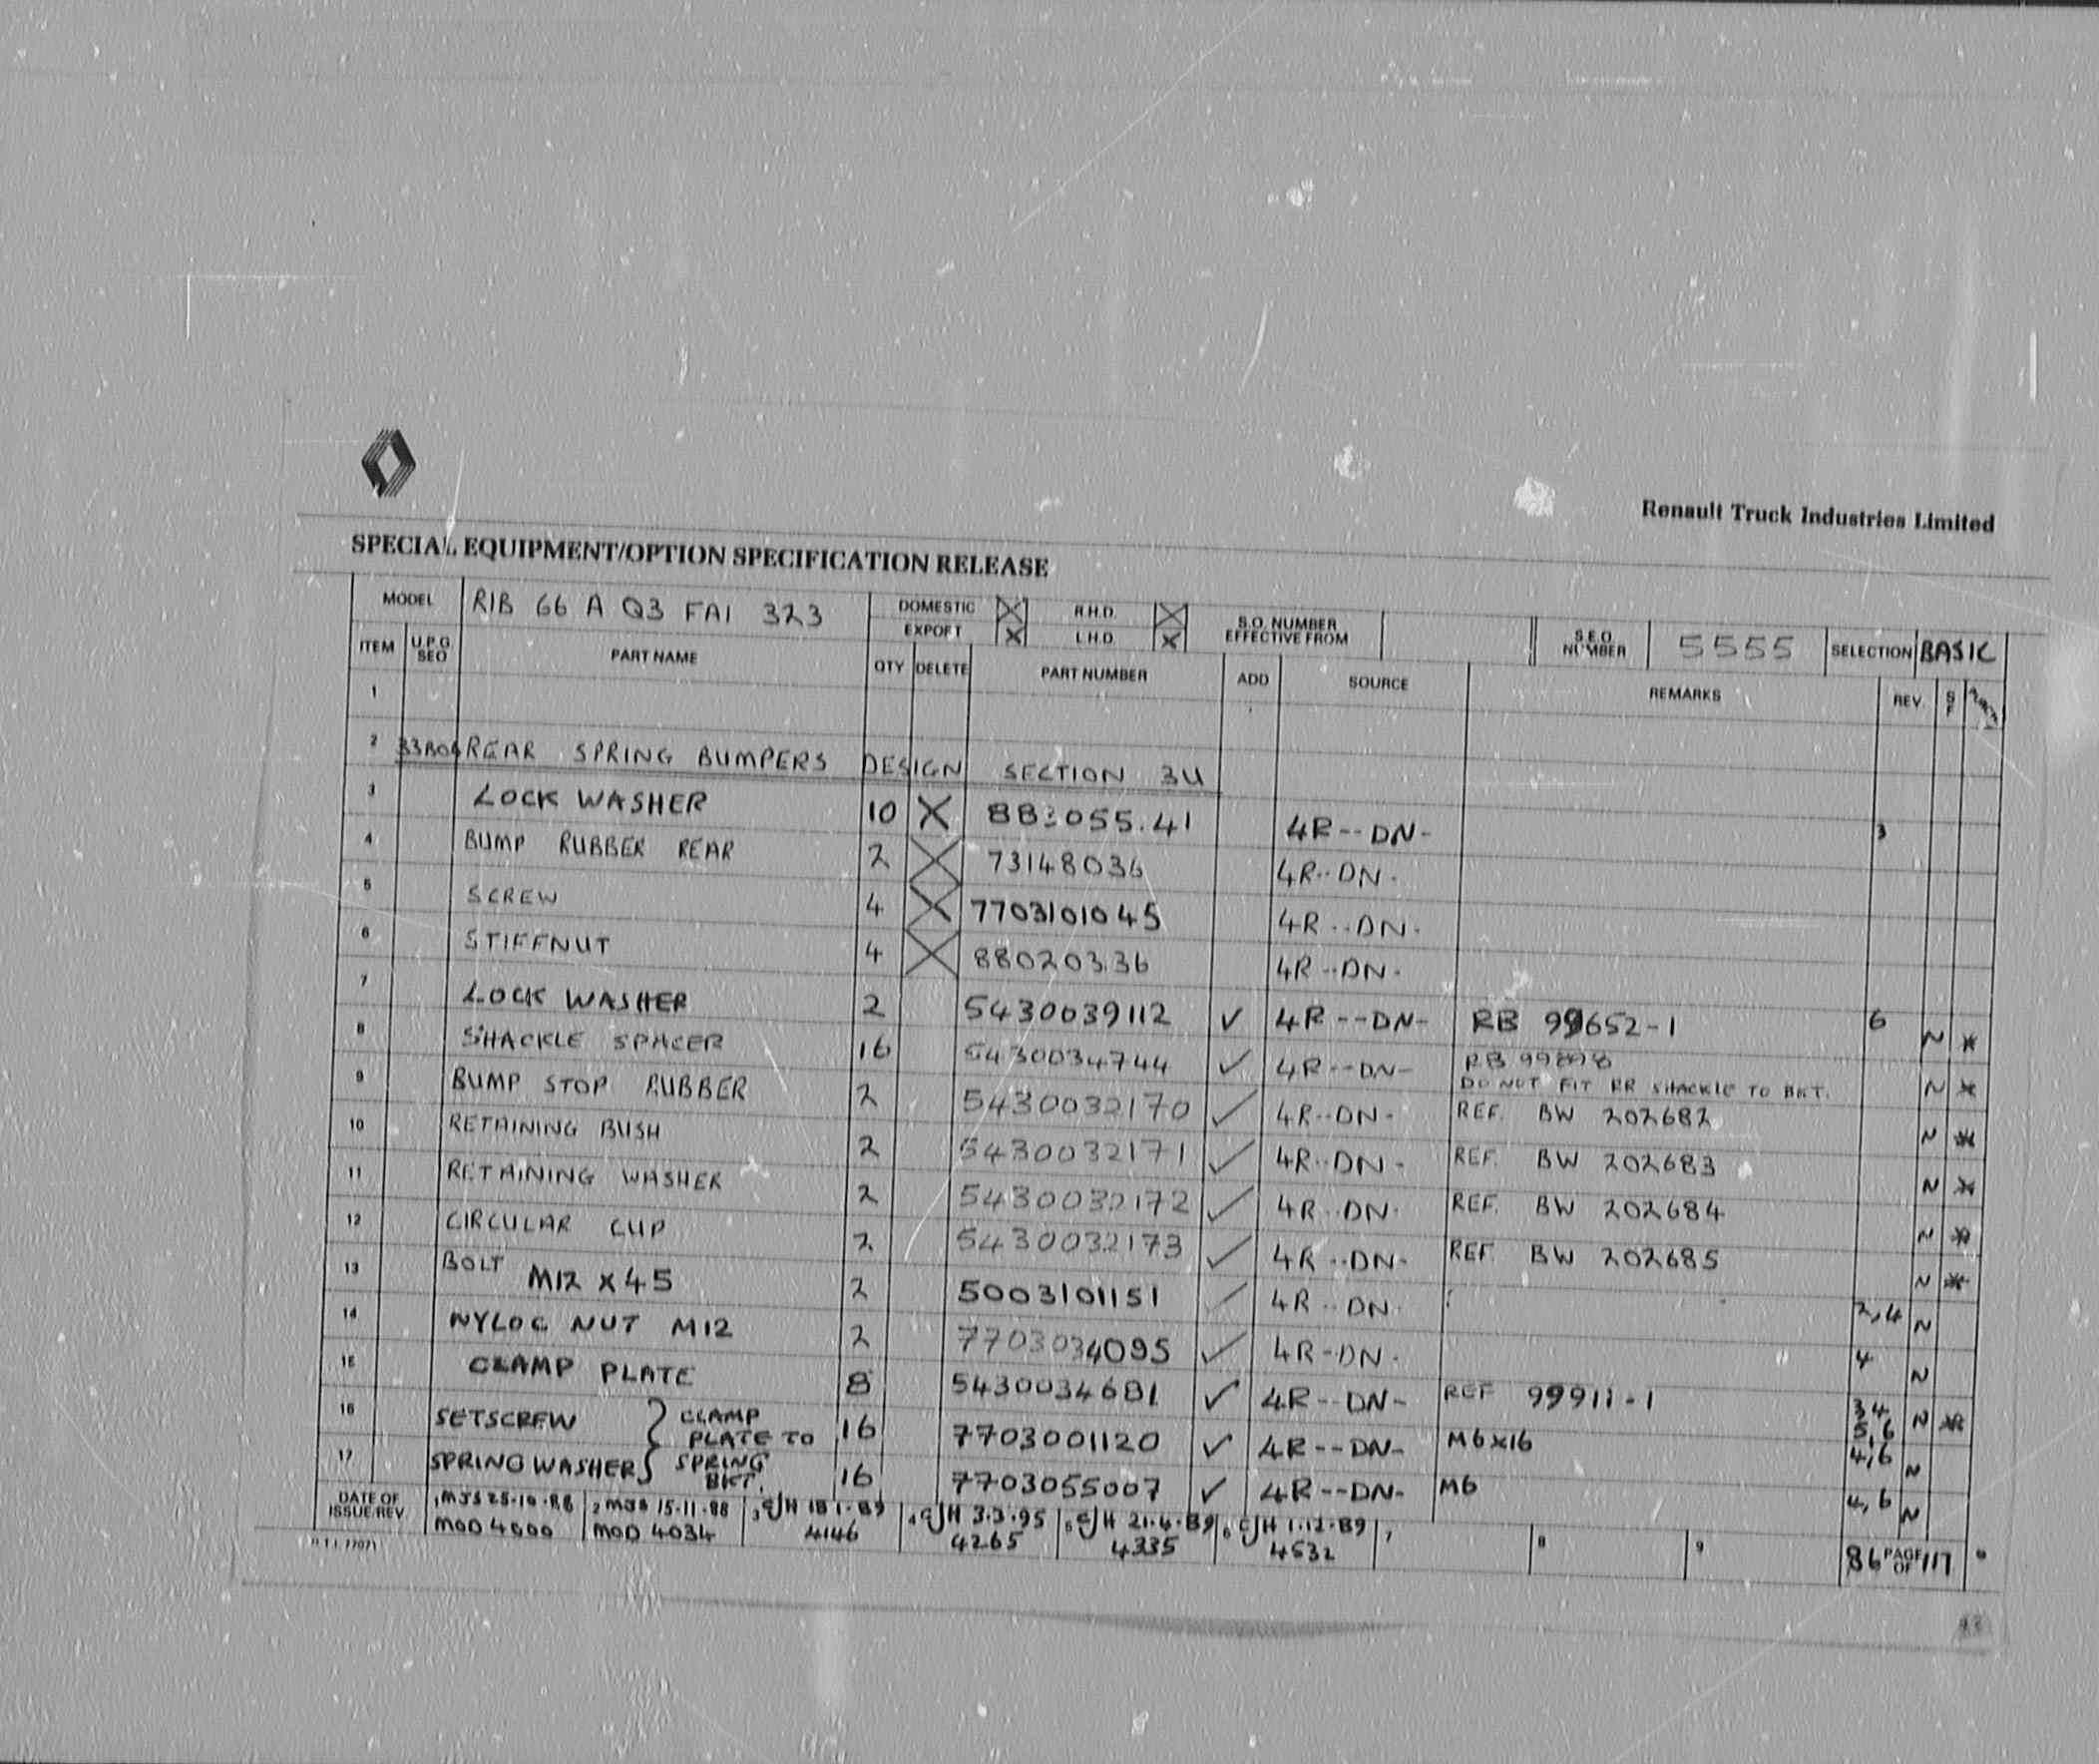 Renault Truck Industries Limited
SPECIAL EQUIPMENT/OPTION SPECIFICATION RELEASE
MODEL RIB 66 A Q3 FAI 323 DOMESTIC R.H.D. S.O. NUMBER EFFECTIVE FROM S.E.O. NUMBER 5555 SELECTION BASIC
EXPORT L.H.D.
ITEM U.P.G. SEO PART NAME QTY DELETE PART NUMBER ADD SOURCE REMARKS REV S F
1
2 33B04 REAR SPRING BUMPERS DESIGN SECTION 3U
3 LOCK WASHER 10 X 883055.41 4R--DN- 3
4 BUMP RUBBER REAR 2 X 73148036 4R--DN-
5 SCREW 4 X 7703101045 4R--DN-
6 STIFFNUT 4 X 88020336 4R--DN-
7 LOCK WASHER 2 5430039112 ✓ 4R--DN- RB 99652-1 6 N *
8 SHACKLE SPACER 16 5430034744 ✓ 4R--DN- RB 99898 N *
DO NOT FIT RR SHACKLE TO BKT.
9 BUMP STOP RUBBER 2 5430032170 ✓ 4R--DN- REF. BW 202682 N *
10 RETAINING BUSH 2 5430032171 ✓ 4R--DN- REF. BW 202683 N *
11 RETAINING WASHER 2 5430032172 ✓ 4R--DN- REF. BW 202684 N *
12 CIRCULAR CUP 2 5430032173 ✓ 4R--DN- REF. BW 202685 N *
13 BOLT M12 X 45 2 5003101151 ✓ 4R--DN- 2,4 N
14 NYLOC NUT M12 2 7703034095 ✓ 4R-DN- 4 N
15 CLAMP PLATE 8 5430034681 ✓ 4R--DN- REF 99911-1 3 4 5,6 N *
16 SETSCREW } CLAMP PLATE TO 16 7703001120 ✓ 4R--DN- M6x16 4,6 N
17 SPRING WASHER } SPRING BKT. 16 7703055007 ✓ 4R--DN- M6 4,6 N
DATE OF ISSUE/REV. 1 MJS 25-10-88 2 MJS 15-11-88 3 CJH 18 1-89 4 CJH 3.3.95 5 CJH 21.4.89 6 CJH 1.12.89 7 8 9 86 PAGE OF 117
MOD 4000 MOD 4034 4146 4265 4335 4532
R.T.I. 77071